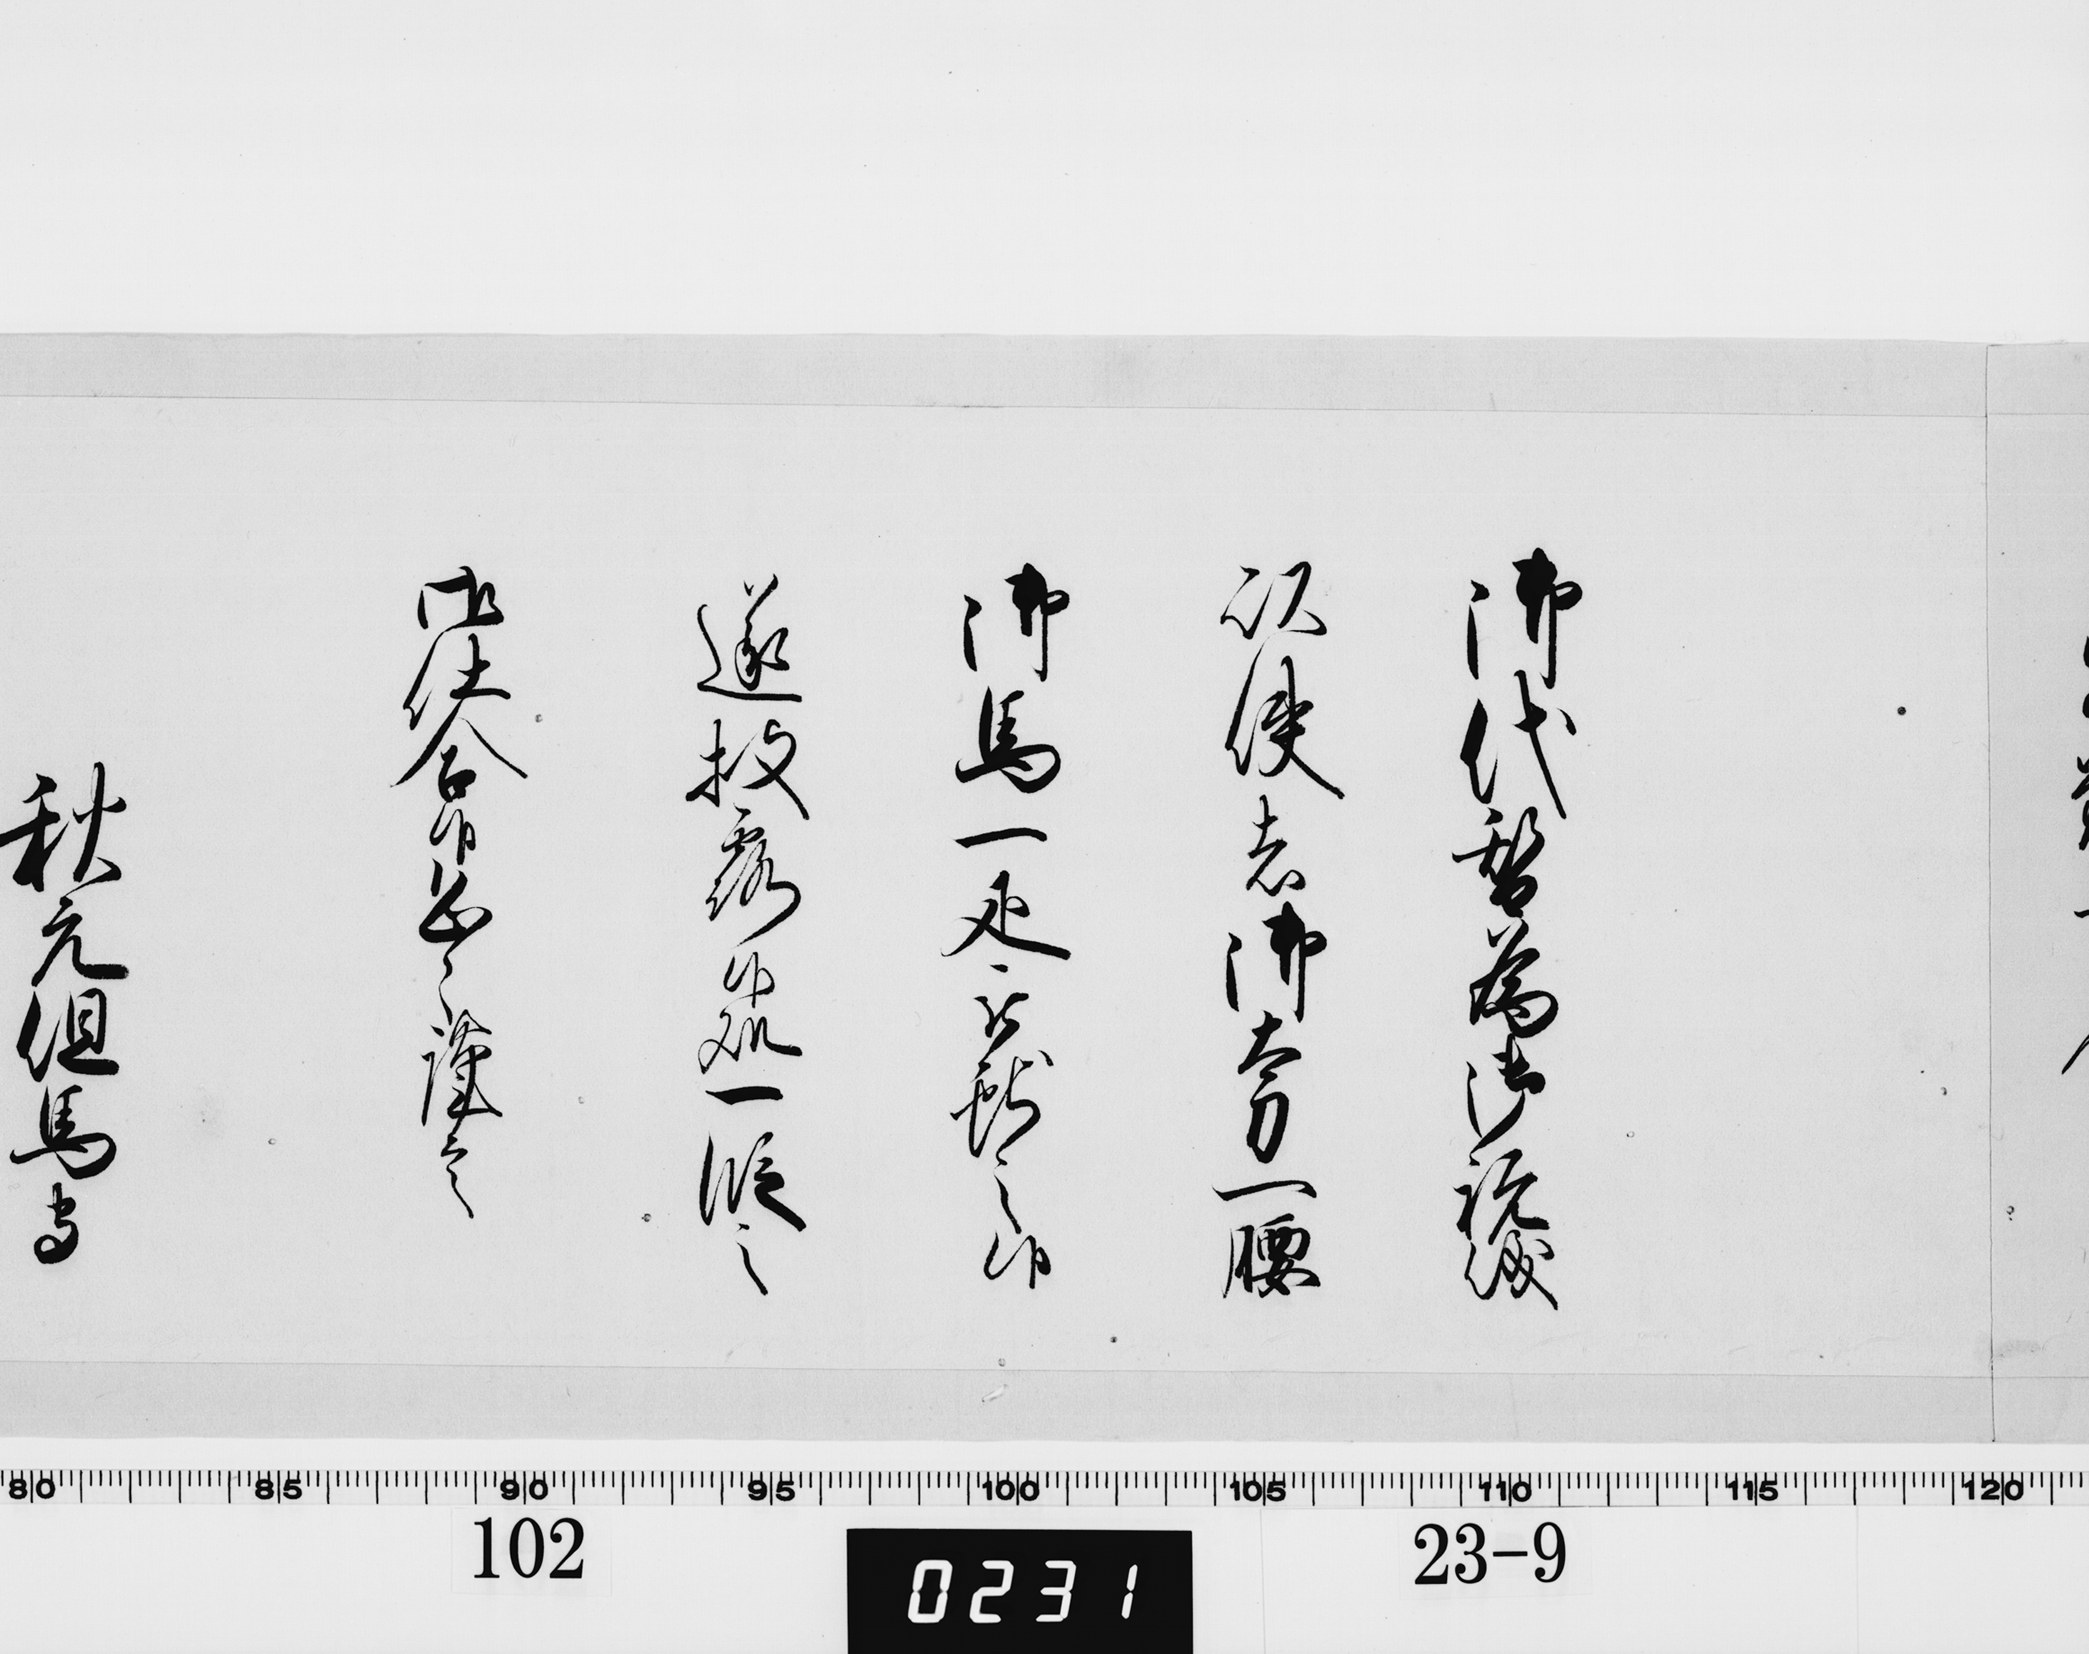 御代替為御祝儀
以使者御太刀一腰
御馬一疋被献之候
遂披露候処一段之
御仕合候恐々謹言
秋元但馬守
80 85 90 95 100 105 110 115 120
102
0231
23-9